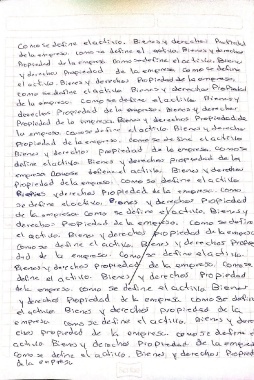 Como se define el activo. Bienes y derechos Propiedad
de la empresa como se define el activo. Bienes y derechos
Propiedad de la empresa como se define el activo. Bienes
y derechos Propiedad de la empresa como se define
el activo. Bienes y derechos Propiedad de la empresa.
como se define el activo Bienes y derechos Propiedad
de la empresa. como se define el activo Bienes y
derechos Propiedad de la empresa. Bienes y derechos
Propiedad de la empresa Bienes y derechos Propiedad de
la empresa. como se define el activo Bienes y derechos
Propiedad de la empresa. como se define el activo
Bienes y derechos propiedad de la empresa. como se
define el activo. Bienes y derechos propiedad de la
empresa como se define el activo. Bienes y derechos
Propiedad de la empresa. como se define el activo
Bienes y derechos Propiedad de la empresa. como
se define el activo. Bienes y derechos Propiedad
de la empresa como se define el activo. Bienes y
derechos Propiedad de la empresa. como se define
el activo. Bienes y derechos propiedad de la empresa
como se define el activo. Bienes y derechos Propie
dad de la empresa. Como se define el activo.
Bienes y derechos propiedad de la empresa. Como se
define el activo. Bienes y derechos Propiedad
de la empresa. como se define el activo Bienes
y derechos Propiedad de la empresa como se define
el activo Bienes y derechos propiedad de la
empresa como se define el activo. Bienes y dere
chos propiedad de la empresa. como se define el
activo Bienes y derechos Propiedad de la empresa
como se define el activo. Bienes y derechos Propiedad
de la empresa